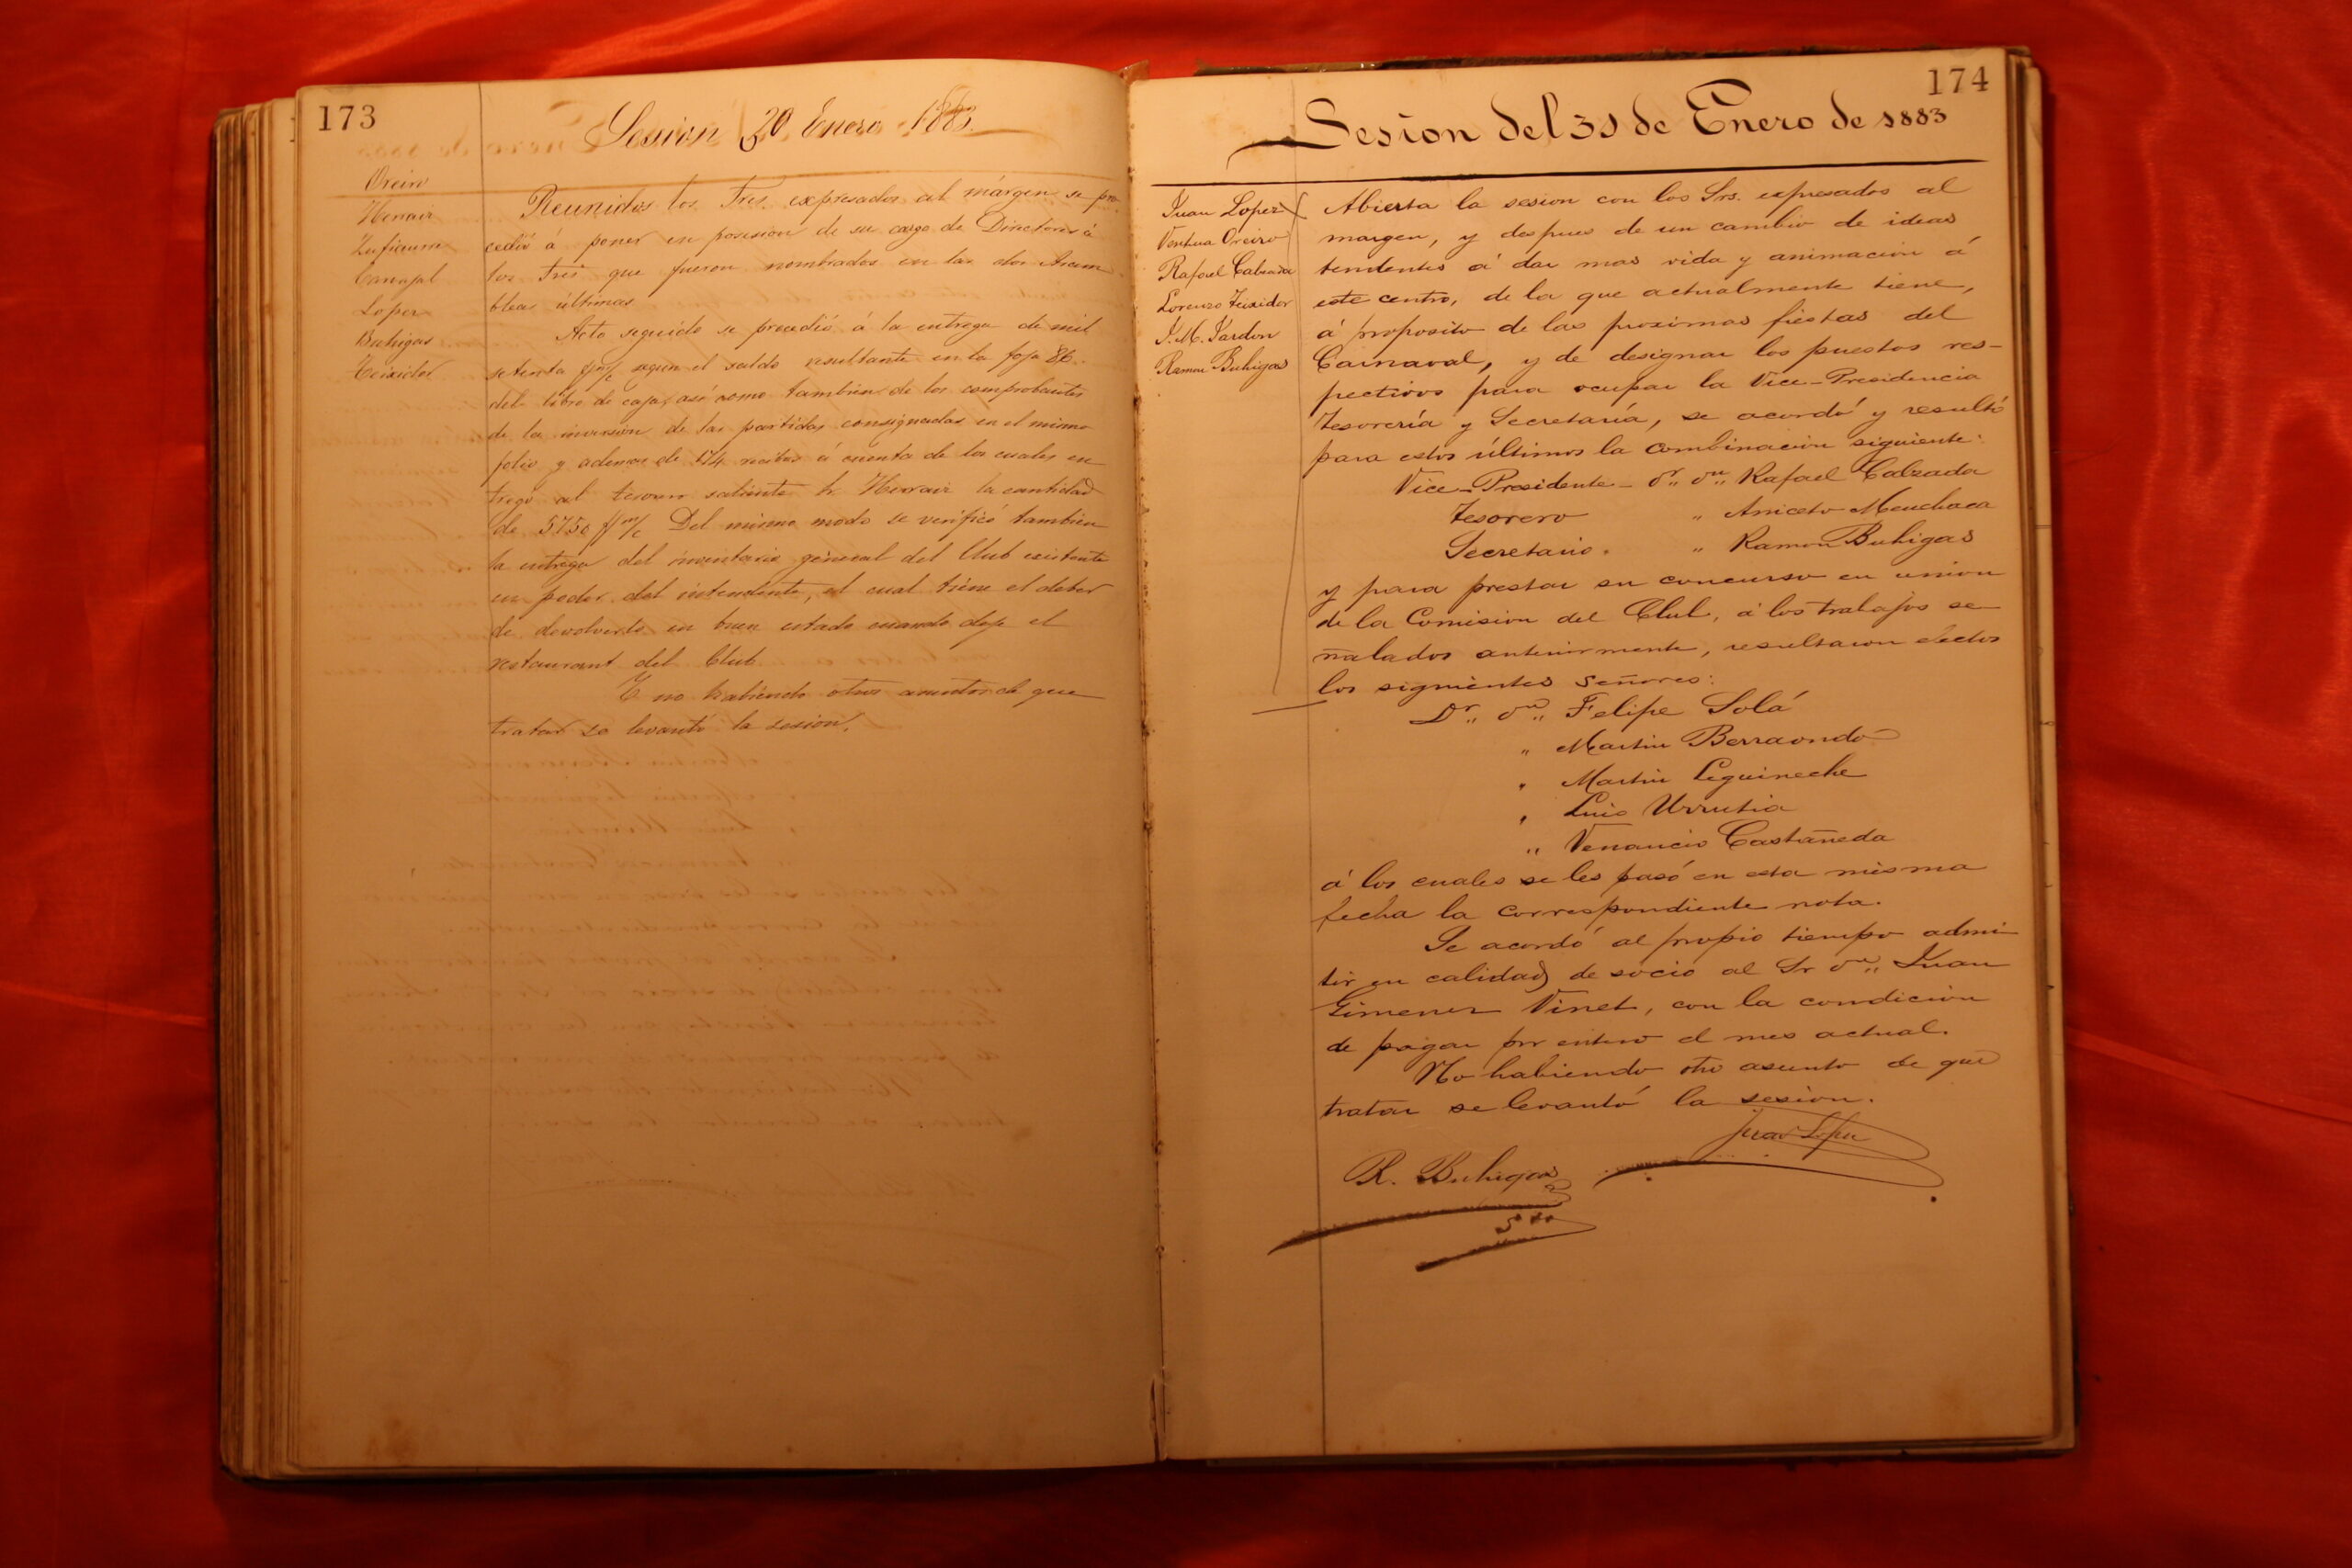 173
Sesion 20 Enero 1883.
Oreiro
Herrair
Zufiaurre
Carvajal
Lopez
Buhigas
Teixidor
Reunidos los Sres. expresados al márgen se pro
cedió á poner en posesion de su cargo de Directores á
los Sres que fueron nombrados en las dos Asam
bleas últimas
Acto seguido se procedió á la entrega de mil
setenta $m/c segun el saldo resultante en la foja 86
del libro de caja, así como tambien de los comprobantes
de la inversion de las partidas consignadas en el mismo
folio y ademas de 174 recibos á cuenta de los cuales en
tregó al tesorero saliente Sr. Herrair la cantidad
de 5750 $m/c Del mismo modo se verificó tambien
la entrega del inventario general del Club existente
en poder del intendente, el cual tiene el deber
de devolverlo en buen estado cuando deje el
restaurant del Club
Y no habiendo otros asuntos de que
tratar se levantó la sesion.
174
Sesion del 31 de Enero de 1883
Juan Lopez
Ventura Oreiro
Rafael Calzada
Lorenzo Teixidor
J. M. Jardon
Ramon Buhigas
Abierta la sesion con los Srs. expresados al
margen, y despues de un cambio de ideas
tendentes á dar mas vida y animación á
este centro, de la que actualmente tiene,
á proposito de las proximas fiestas del
Carnaval, y de designar los puestos res-
pectivos para ocupar la Vice-Presidencia
Tesorería y Secretaría, se acordó y resultó
para estos últimos la combinación siguiente:
Vice-Presidente - Dr. Dn. Rafael Calzada
Tesorero " Aniceto Menchaca
Secretario. " Ramon Buhigas
y para prestar su concurso en union
de la Comision del Club, á los trabajos se
ñalados anteriormente, resultaron electos
los siguientes señores:
Dr. Dn. Felipe Solá
" Martin Berraondo
" Martin Leguineche
" Luis Urrutia
" Venancio Castañeda
á los cuales se les pasó en esta misma
fecha la correspondiente nota.
Se acordó al propio tiempo admi
tir en calidad de socio al Sr Dn. Juan
Gimenez Vinet, con la condición
de pagar por entero el mes actual.
No habiendo otro asunto de que
tratar se levantó la sesion.
Juan Lopez
R. Buhigas
Srio